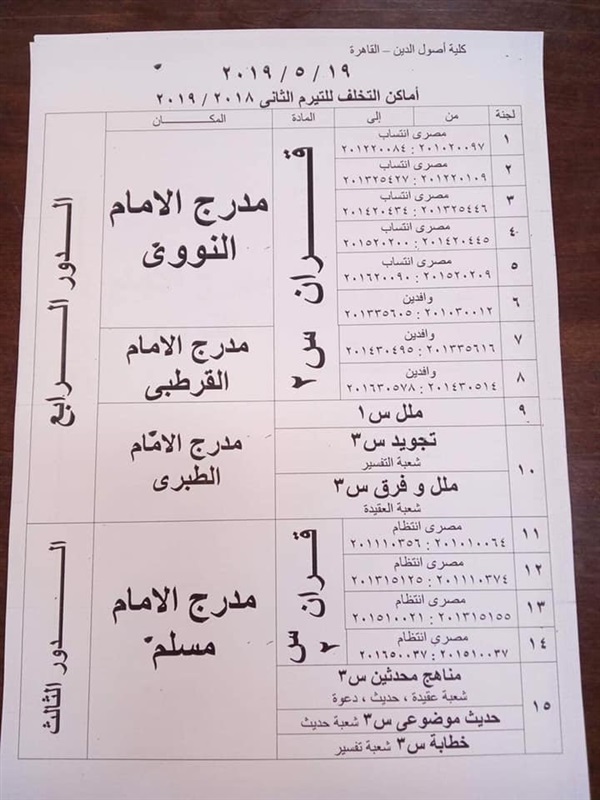 كلية أصول الدين – القاهرة
١٩ / ٥ / ٢٠١٩
أماكن التخلف للتيرم الثانى ٢٠١٨ / ٢٠١٩
لجنة من إلى المادة المكـــــان
١ مصرى انتساب
٢٠١٠٢٠٠٩٧ : ٢٠١٢٢٠٠٨٤
٢ مصرى انتساب
٢٠١٢٢٠١٠٩ : ٢٠١٣٢٥٤٢٧
٣ مصرى انتساب
٢٠١٣٢٥٤٤٦ : ٢٠١٤٢٠٤٣٤
٤ مصرى انتساب
٢٠١٤٢٠٤٤٥ : ٢٠١٥٢٠٢٠٠
٥ مصرى انتساب
٢٠١٥٢٠٢٠٩ : ٢٠١٦٢٠٠٩٠
٦ وافدين
٢٠١٠٣٠٠١٢ : ٢٠١٣٣٥٦٠٥
٧ وافدين
٢٠١٣٣٥٦١٦ : ٢٠١٤٣٠٤٩٥
٨ وافدين
٢٠١٤٣٠٥١٤ : ٢٠١٦٣٠٥٧٨
قـــران س٢
مدرج الامام
النووى
مدرج الامام
القرطبى
الـــدور الـــرابع
٩ ملل س١
١٠ تجويد س٣
شعبة التفسير
ملل و فرق س٣
شعبة العقيدة
مدرج الامام
الطبرى
١١ مصرى انتظام
٢٠١٠١٠٠٦٤ : ٢٠١١١٠٣٥٦
١٢ مصرى انتظام
٢٠١١١٠٣٧٤ : ٢٠١٣١٥١٢٥
١٣ مصرى انتظام
٢٠١٣١٥١٥٥ : ٢٠١٥١٠٠٢١
١٤ مصرى انتظام
٢٠١٥١٠٠٣٧ : ٢٠١٦٥٠٠٣٧
قـــران س
٢
مدرج الامام
مسلم
الـــدور الثالث
١٥ مناهج محدثين س٣
شعبة عقيدة ، حديث ، دعوة
حديث موضوعى س٣ شعبة حديث
خطابة س٣ شعبة تفسير